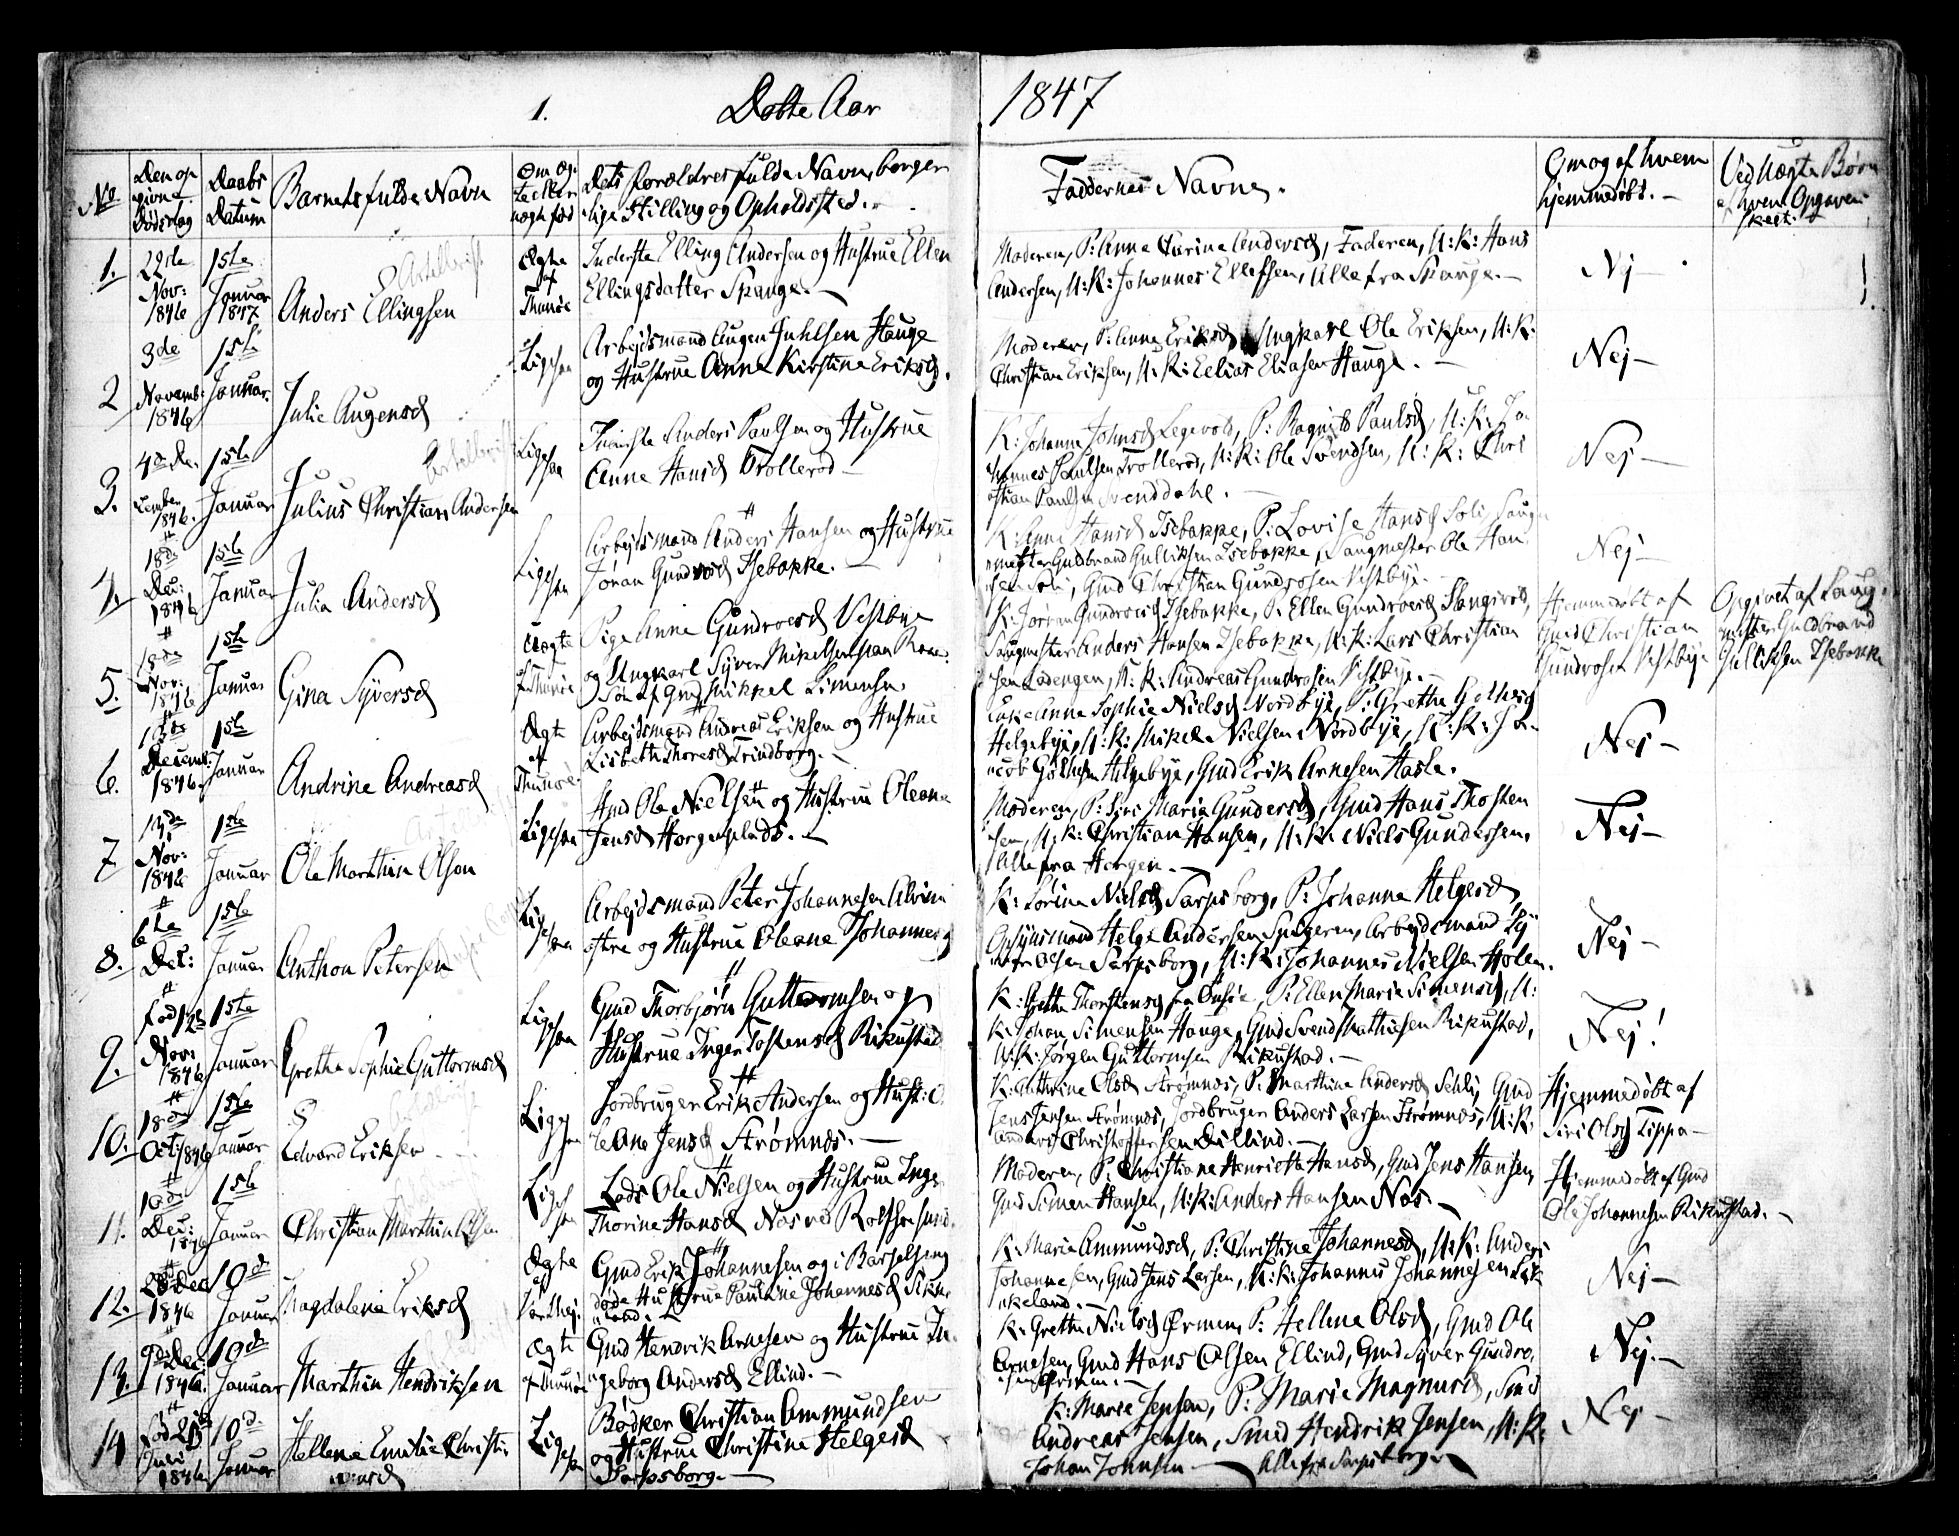 1. Døbte Aar 1847
No
Den op
givne
Fødselsdag
Daabs
Datum
Barnets fulde Navn
Om Æg-
te eller
uægte fød
Dets Forældres fulde Navn, borger
lige Stilling og Opholdssted.
Faddernes Navne.
Om og af hvem
hjemmedøbt.
Ved Uægte Børn
af hvem Opgaven
skeet.
1.
22de
Nov:
1846
1ste
Januar
1847
Anders Ellingsen
Ægte
af
Thunøe
Inderste Elling Andersen og Hustrue Ellen
Ellingsdatter Spange.
Moderen, P: Anne Carine Andersd, Faderen, U: K: Hans
Andersen, U: K: Johannes Ellefsen, Alle fra Spange.
Nej
2
3de
Novemb:
1846
1ste
Januar
Julie Augensd
Ligesaa
Arbejdsmand Augen Juhlsen Hauge
og Hustrue Anne Kirstine Eriksd.
Moderen, P: Anne Eriksd, Ungkarl Ole Eriksen, U: K:
Christian Eriksen, U: K: Eelias Eliasen Hauge.
Nej
3.
4de
1846
1ste
Januar
Julius Christian Andersen
Ligesaa
Anders Paulsen og Hustrue
Anne Hansd Trollerød
K: Johanne Johnsd P: Ragnild Paulsd, U: K: Jo
hannes Paulsen Trollerød, U: K: Ole Svendsen, U: K: Chri
stian Paulsen Svenddahl.
Nej
4.
18de
Dec:
1846
1ste
Januar
Julia Andersd
Ligesaa
Arbejdsmand Anders Hansen og Hustrue
Jøran Gundroesd Isebakke.
K: Anne Hansd Isebakke, P: Lovise Hansd Soli, Saug
mester Guldbrand Gulliksen Isebakke, Saugmester Ole Han
sen Soli, Gmd Christian Gundrosen Vestbye.
Nej
5.
18de
Nov:
1846
1ste
Januar
Gina Syversd
Uægte
af Thunøe
Pige Anne Gundroesd Vestbye
og Ungkarl Syver Mikelsen
Søn af Gmd Mikkel Simensen
K: Jørran Gundroesd Isebakke, P: Ellen Gundroesd
Saugmester Anders Hansen Isebakke, U: K: Lars Christian
sen Ladengen, U: K: Andreas Gundrosen Vestbye.
Hjemmedøbt af
Gmd Christian
Gundrosen Vestbye
Opgivet af Saug-
mester Guldbrand
Gulliksen Isebakke
6.
Decemb:
1846.
1ste
Januar
Andrine Andreasd
Ægte
af
Thunøe
Arbejdsmand Andreas Eriksen og Hustrue
Lisbeth Thoresd Trindborg.
Anne Sophie Nielsd Nordbye, P: Grethe
Helgebye, U: K: Mikel Nielsen Nordbye, U: K: Ja-
cob Helgebye, Gmd Erik Arnesen Hasle.
Nej
7
13de
Nov:
1846
1ste
Januar
Ole Marthin Olsen
Ligesaa
Gmd Ole Nielsen og Hustrue Oleane
Jensd Horgenplads.
Moderen, P: Siri Maria Gundersd, Gmd Hans Thosten
sen, U: K: Christian Hansen, U: K: Niels Gundersen,
Alle fra Horgen.
Nej
8.
6te
Dec:
1ste
Januar
Anthon Petersen
Ligesaa
Arbejdsmand Peter Johannesen Alvim
østre og Hustrue Oleane Johannesd
K: Sørine Nielsd Sarpsborg, P: Johanne Helgesd
Opsynsmand Helge Andersen Spigeren, Arbejdsmand Sy
ver Olsen Sarpsborg, U: K: Johannes Nielsen Holen.
Nej
9.
Fød 12te
Nov:
1846
1ste
Januar
Grethe Sophie Guttormsd
Ligesaa
Gmd Thorbjørn Guttormsen og
Hustrue Inger Tostensd Rikustad
K: Grethe Thorstensd fra Onsøe, P: Ellen Marie Simensd, U:
K: Johan Simensen Hauge, Gmd Svend Mathiesen Rikustad,
U: K: Jørgen Guttormsen Rikustad.
Nej!
10.
18de
Oct: 1846
1ste
Januar
Edvard Eriksen
Ligesaa
Jordbruger Erik Andersen og Hust: O
leane Jensd Strømnes.
K: Cathrine Olsd Strømnes, P: Marthine Andersd Gmd
Jens Jensen Strømnes, Jordbruger Anders Larsen Strømnes, U: K.
Anders Christoffersen Dillind.
Hjemmedøbt af
Siri Olsd Lippa
11.
10de
Dec:
1846
1ste
Januar
Christian Marthin Olsen
Ligesaa
Lods Ole Nielsen og Hustrue Inge
Thorine Hansd Nas ved Rolfsøe sund.
Moderen, P: Christiane Henriette Hansd, Gmd Jens Hansen,
Gmd Simen Hansen, U: K: Anders Hansen Nas.
Hjemmedøbt af Gmd
Ole Johannesen Rikustad.
12.
28 Dec
1846
10de
Januar
Magdalene Eriksd
Ægte
af
Gmd Erik Johannesen og i Barselseng
døde Hustrue Pauline Johannesd
K: Marie Ammundsd, P: Christine Johannesd, U: K: Anders
Johannesen, Gmd Jens Larsen, U: K: Johannes Johannesen
Nej
13.
9de Dec:
1846.
10de
Januar
Marthin Hendriksen
Ægte
af Thunøe
Gmd Hendrik Arnesen og Hustrue In-
geborg Andersd Ellind.
K: Grethe Nielsd Ørmen, P: Helline Olsd, Gmd Ole
Arnesen, Gmd Hans Olsen Ellind, Gmd Syver Gundro,
sen Ørmen.
Nej.
14
Juli
1846
10de
Januar
Hellene Emilie Christi
ansd
Ligesaa
Bødker Christian Ammundsen
og Hustrue Christine Helgesd
Sarpsborg.
K: Marie Jensen, P: Marie Magnusd, Smed
Andreas Jensen, Smed Hendrik Jensen, U: K:
Johan Johnsen Alle fra Sarpsborg.
Nej